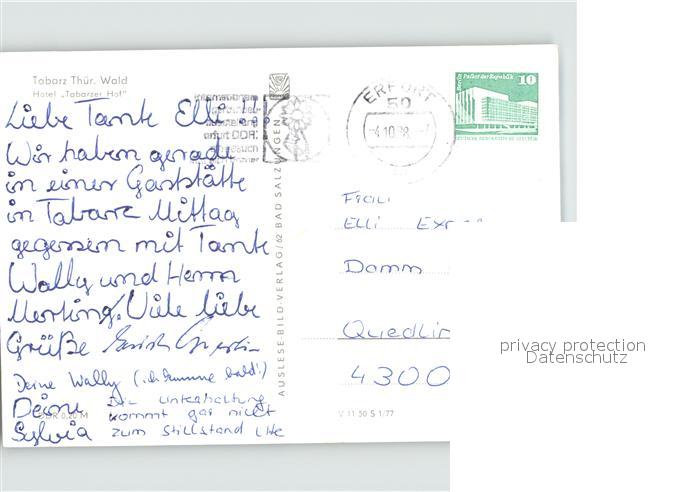 Tabarz Thür. Wald
Hotel „Tabarzer Hof"
Liebe Tante Elli !!
Wir haben gerade
in einer Gaststätte
in Tabarz Mittag
gegessen mit Tante
Wally und Herrn
Merting. Viele liebe
Grüße
Deine Wally (ich komme bald!)
Deine
Sylvia
Die Unterhaltung
kommt gar nicht
zum Stillstand
0,20 M
AUSLESE-BILD-VERLAG/62 BAD SALZUNGEN
V 11 50 S 1/77
ERFURT
50
-4.10.
Berlin Palast der Republik 10
DEUTSCHE DEMOKRATISCHE REPUBLIK
Elli
Damm
4300
privacy protection
Datenschutz